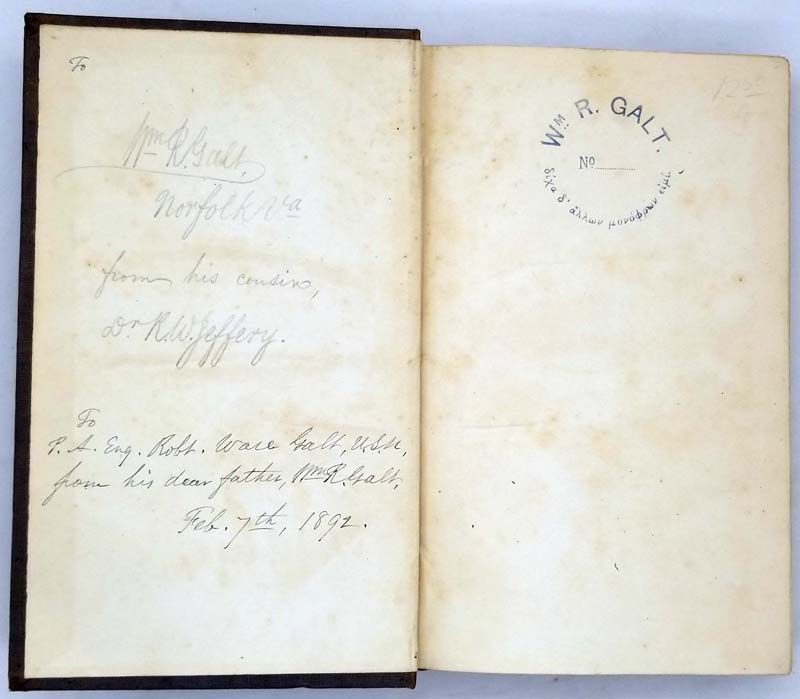 To
Wm R. Galt,
Norfolk Va
from his cousin,
Dr R. W. Jeffery.
To
P. A. Eng. Robt. Ware Galt, U.S.N.,
from his dear father, Wm R. Galt,
Feb. 7th, 1892.
12.50
WM R. GALT.
No
δίχα δ' ἄλλων μονόφρων εἰμί.